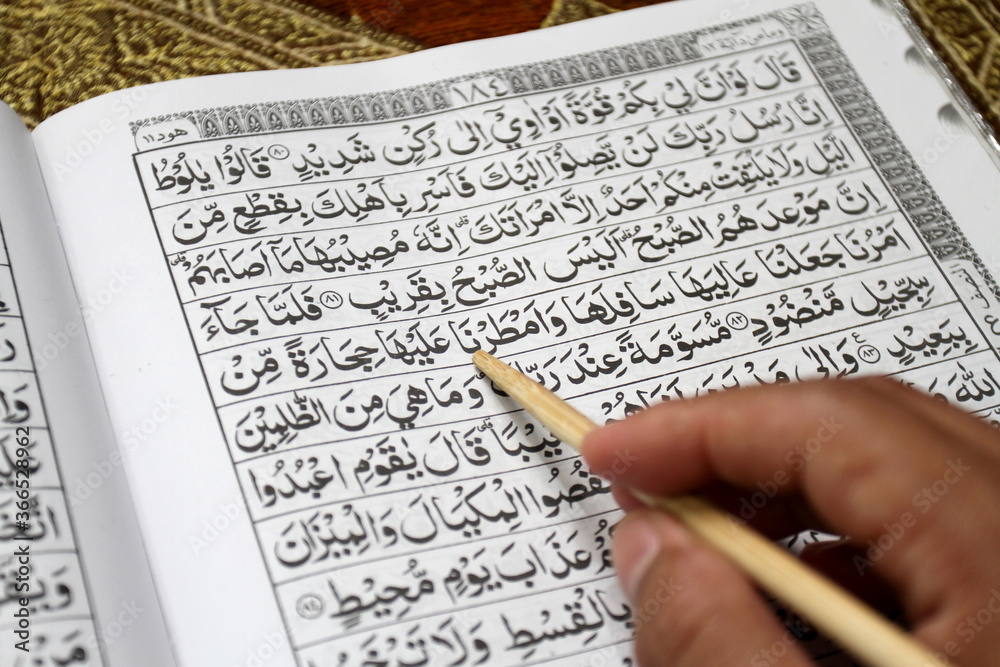 وما من دابة ١٢
١٨٤
هود ١١
قَالَ لَوْ اَنَّ لِيْ بِكُمْ قُوَّةً اَوْ اٰوِيْٓ اِلٰى رُكْنٍ شَدِيْدٍ ٨٠ قَالُوْا يٰلُوْطُ
اِنَّا رُسُلُ رَبِّكَ لَنْ يَّصِلُوْٓا اِلَيْكَ فَاَسْرِ بِاَهْلِكَ بِقِطْعٍ مِّنَ
الَّيْلِ وَلَا يَلْتَفِتْ مِنْكُمْ اَحَدٌ اِلَّا امْرَاَتَكَۗ اِنَّهٗ مُصِيْبُهَا مَآ اَصَابَهُمْۗ
اِنَّ مَوْعِدَهُمُ الصُّبْحُۗ اَلَيْسَ الصُّبْحُ بِقَرِيْبٍ ٨١ فَلَمَّا جَاۤءَ
اَمْرُنَا جَعَلْنَا عَالِيَهَا سَافِلَهَا وَاَمْطَرْنَا عَلَيْهَا حِجَارَةً مِّنْ
سِجِّيْلٍ مَّنْضُوْدٍ ٨٢ مُسَوَّمَةً عِنْدَ رَبِّكَ وَمَا هِيَ مِنَ الظّٰلِمِيْنَ
بِبَعِيْدٍ ٨٣ وَاِلٰى مَدْيَنَ اَخَاهُمْ شُعَيْبًاۗ قَالَ يٰقَوْمِ اعْبُدُوا
اللّٰهَ تَنْقُصُوا الْمِكْيَالَ وَالْمِيْزَانَ
عَذَابَ يَوْمٍ مُّحِيْطٍ ٨٤
بِالْقِسْطِ وَلَا
Adobe Stock | #366528962